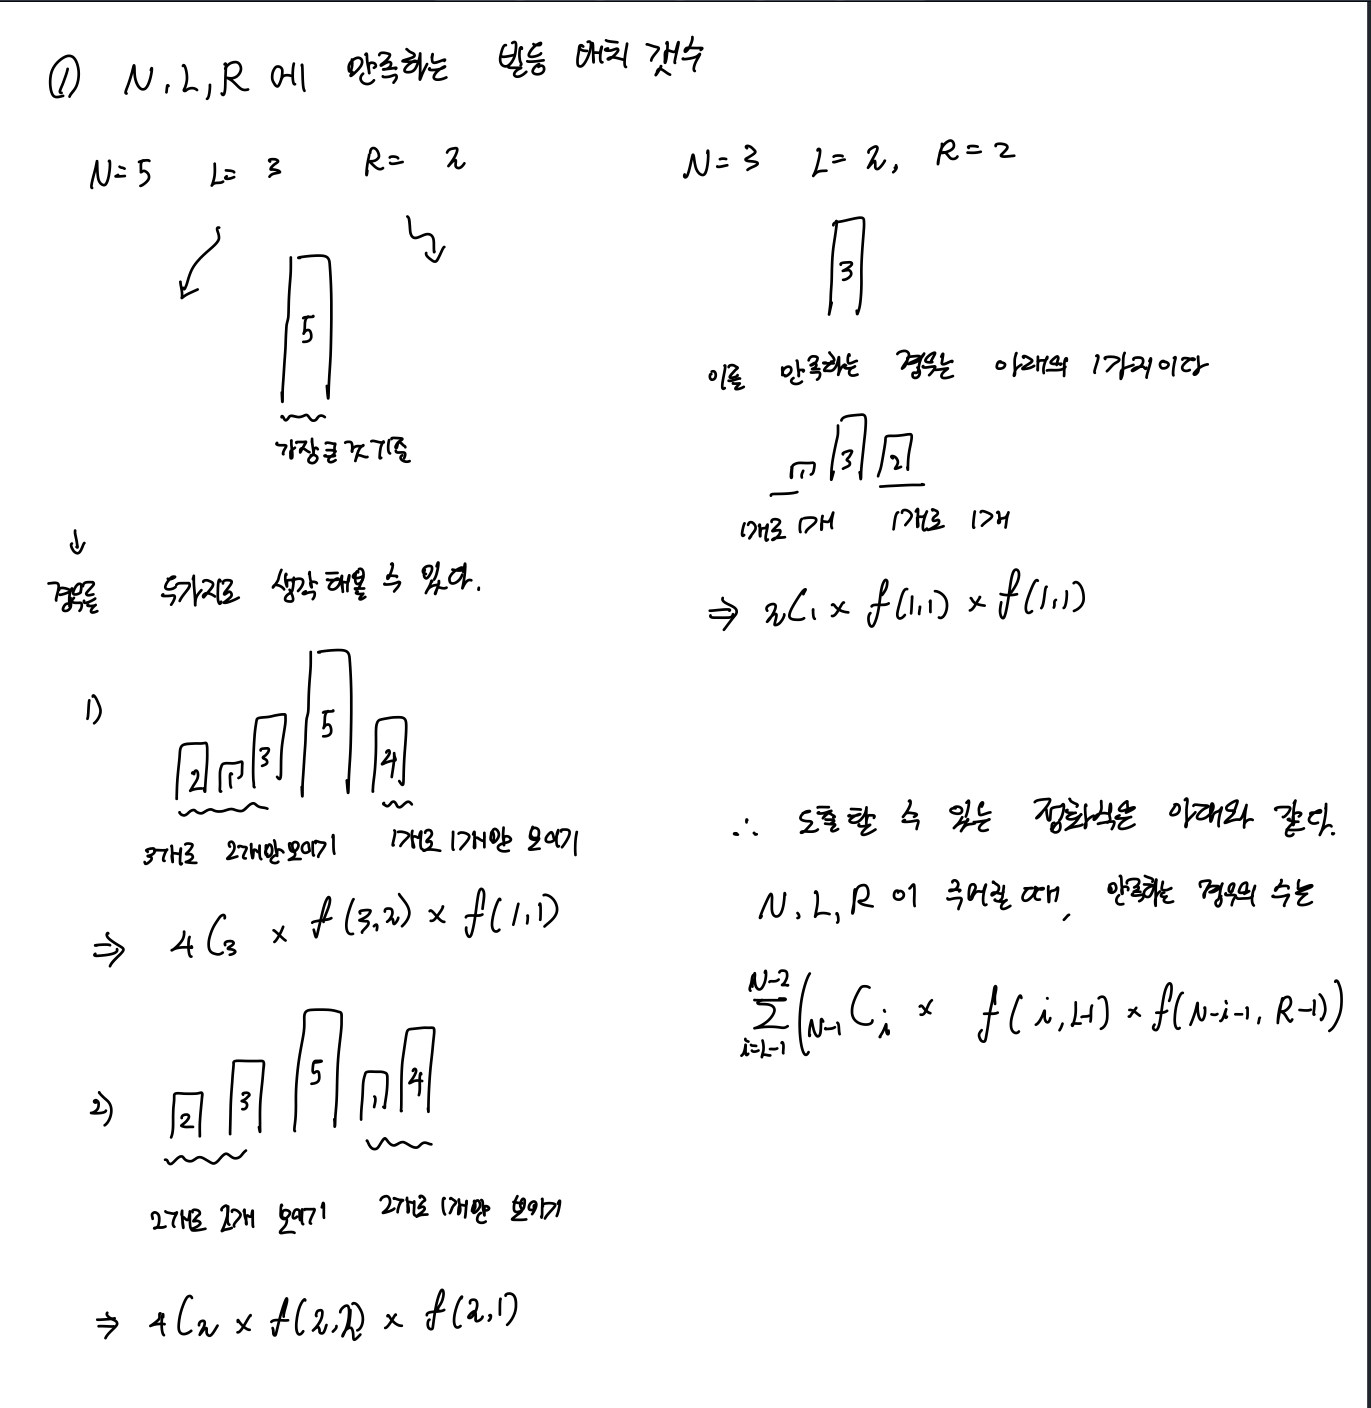 ① N, L, R 에 만족하는 빌딩 배치 갯수
N=5 L= 3 R= 2
5
가장 큰 것 기준
↓
경우를 두가지로 생각해볼 수 있다.
1)
2 1 3 5 4
3개로 2개만 보이기 1개로 1개만 보이기
⇒ 4C₃ × f(3,2) × f(1,1)
2)
2 3 5 1 4
2개로 2개 보이기 2개로 1개만 보이기
⇒ 4C₂ × f(2,2) × f(2,1)
N=3 L=2, R=2
3
이를 만족하는 경우는 아래의 1가지이다
1 3 2
1개로 1개 1개로 1개
⇒ 2C₁ × f(1,1) × f(1,1)
∴ 도출할 수 있는 점화식은 아래와 같다.
N, L, R 이 주어질 때, 만족하는 경우의 수는
N-2
Σ (N-1Cᵢ × f(i, L-1) × f(N-i-1, R-1))
i=L-1